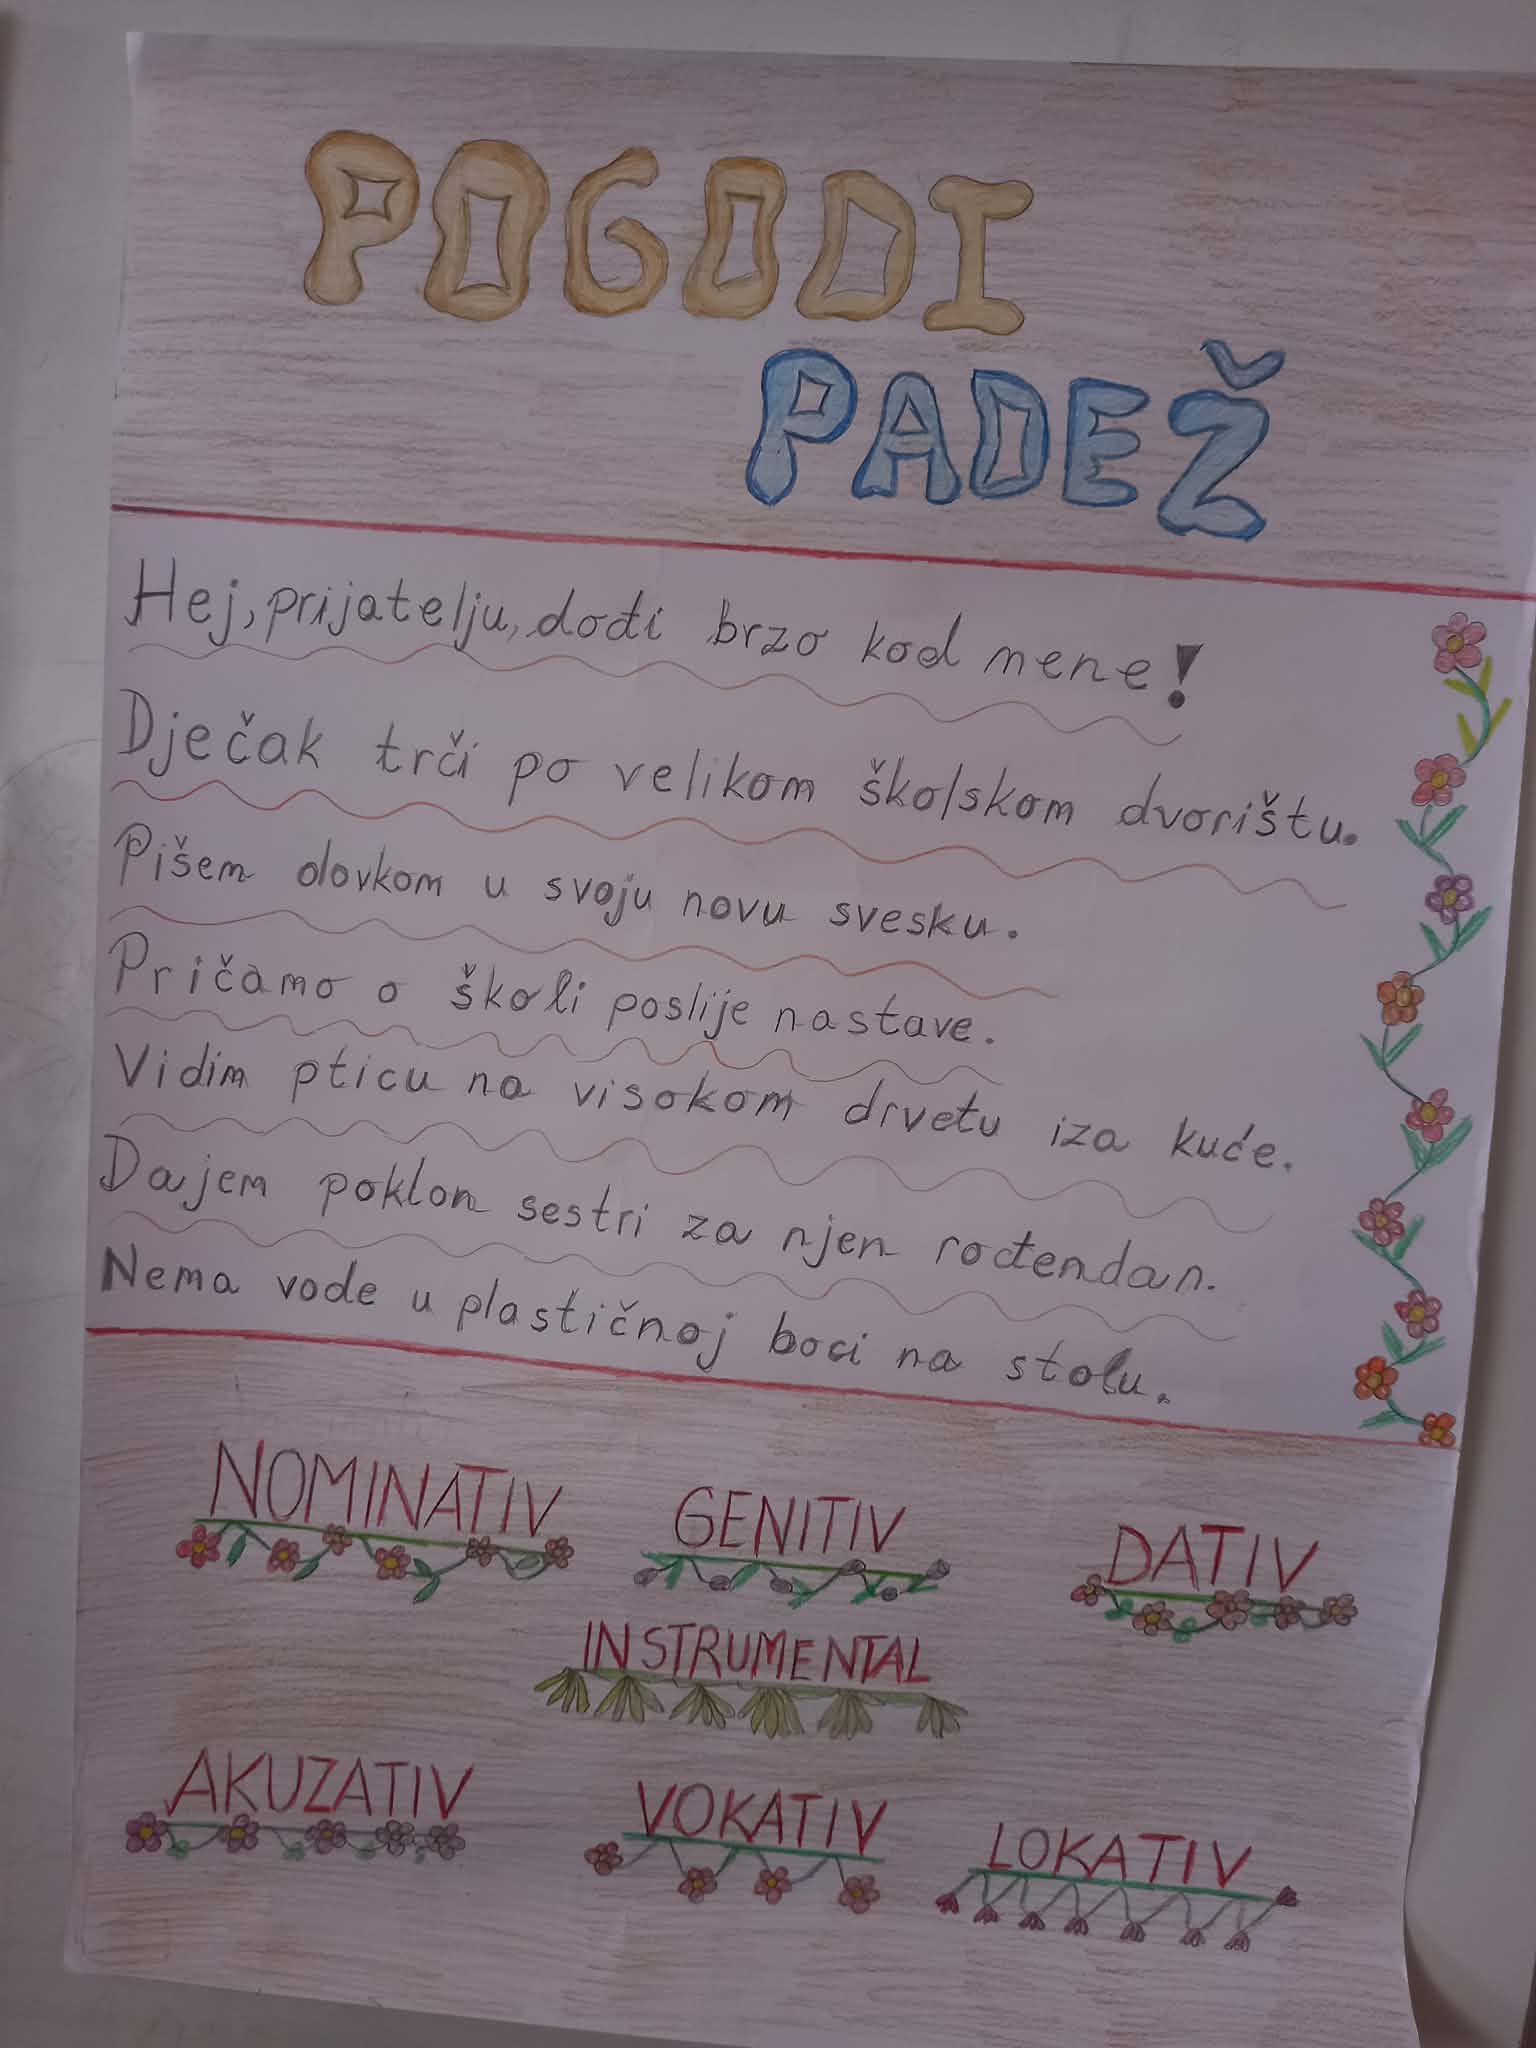 POGODI
PADEŽ
Hej, prijatelju, dođi brzo kod mene!
Dječak trči po velikom školskom dvorištu.
Pišem olovkom u svoju novu svesku.
Pričamo o školi poslije nastave.
Vidim pticu na visokom drvetu iza kuće.
Dajem poklon sestri za njen rođendan.
Nema vode u plastičnoj boci na stolu.
NOMINATIV GENITIV DATIV
INSTRUMENTAL
AKUZATIV VOKATIV LOKATIV